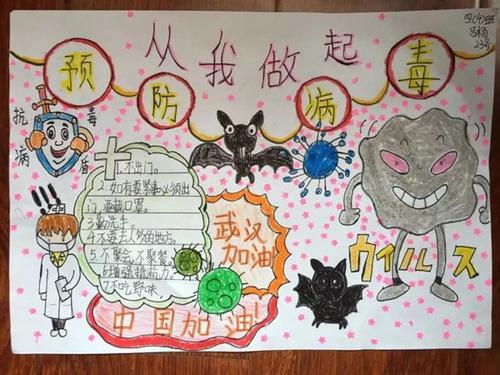 四(4)班
23号
从我做起
预防病毒
抗病毒盾
1.不出门。
2.如有要紧事必须出
门,要戴口罩。
3.勤洗手。
4.不要去人多的地方。
5.不聚会,不聚餐。
6.增强抵抗力。
7.不吃野味。
武汉
加油
中国加油!
ウイルス